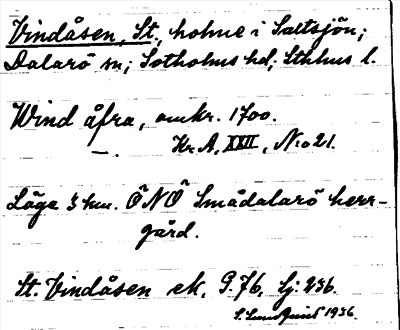 Vindåsen, St., holme i Saltsjön;
Dalarö sn; Sotholms hd; Sthlms l.
Wind åsra, omkr. 1700.
—. Kr. A, XXII, No 21.
Läge 3 km. ÖNÖ Smådalarö herr-
gård.
St. Vindåsen ek. 9.76, Sj: 236.
S. Lundquist 1936.